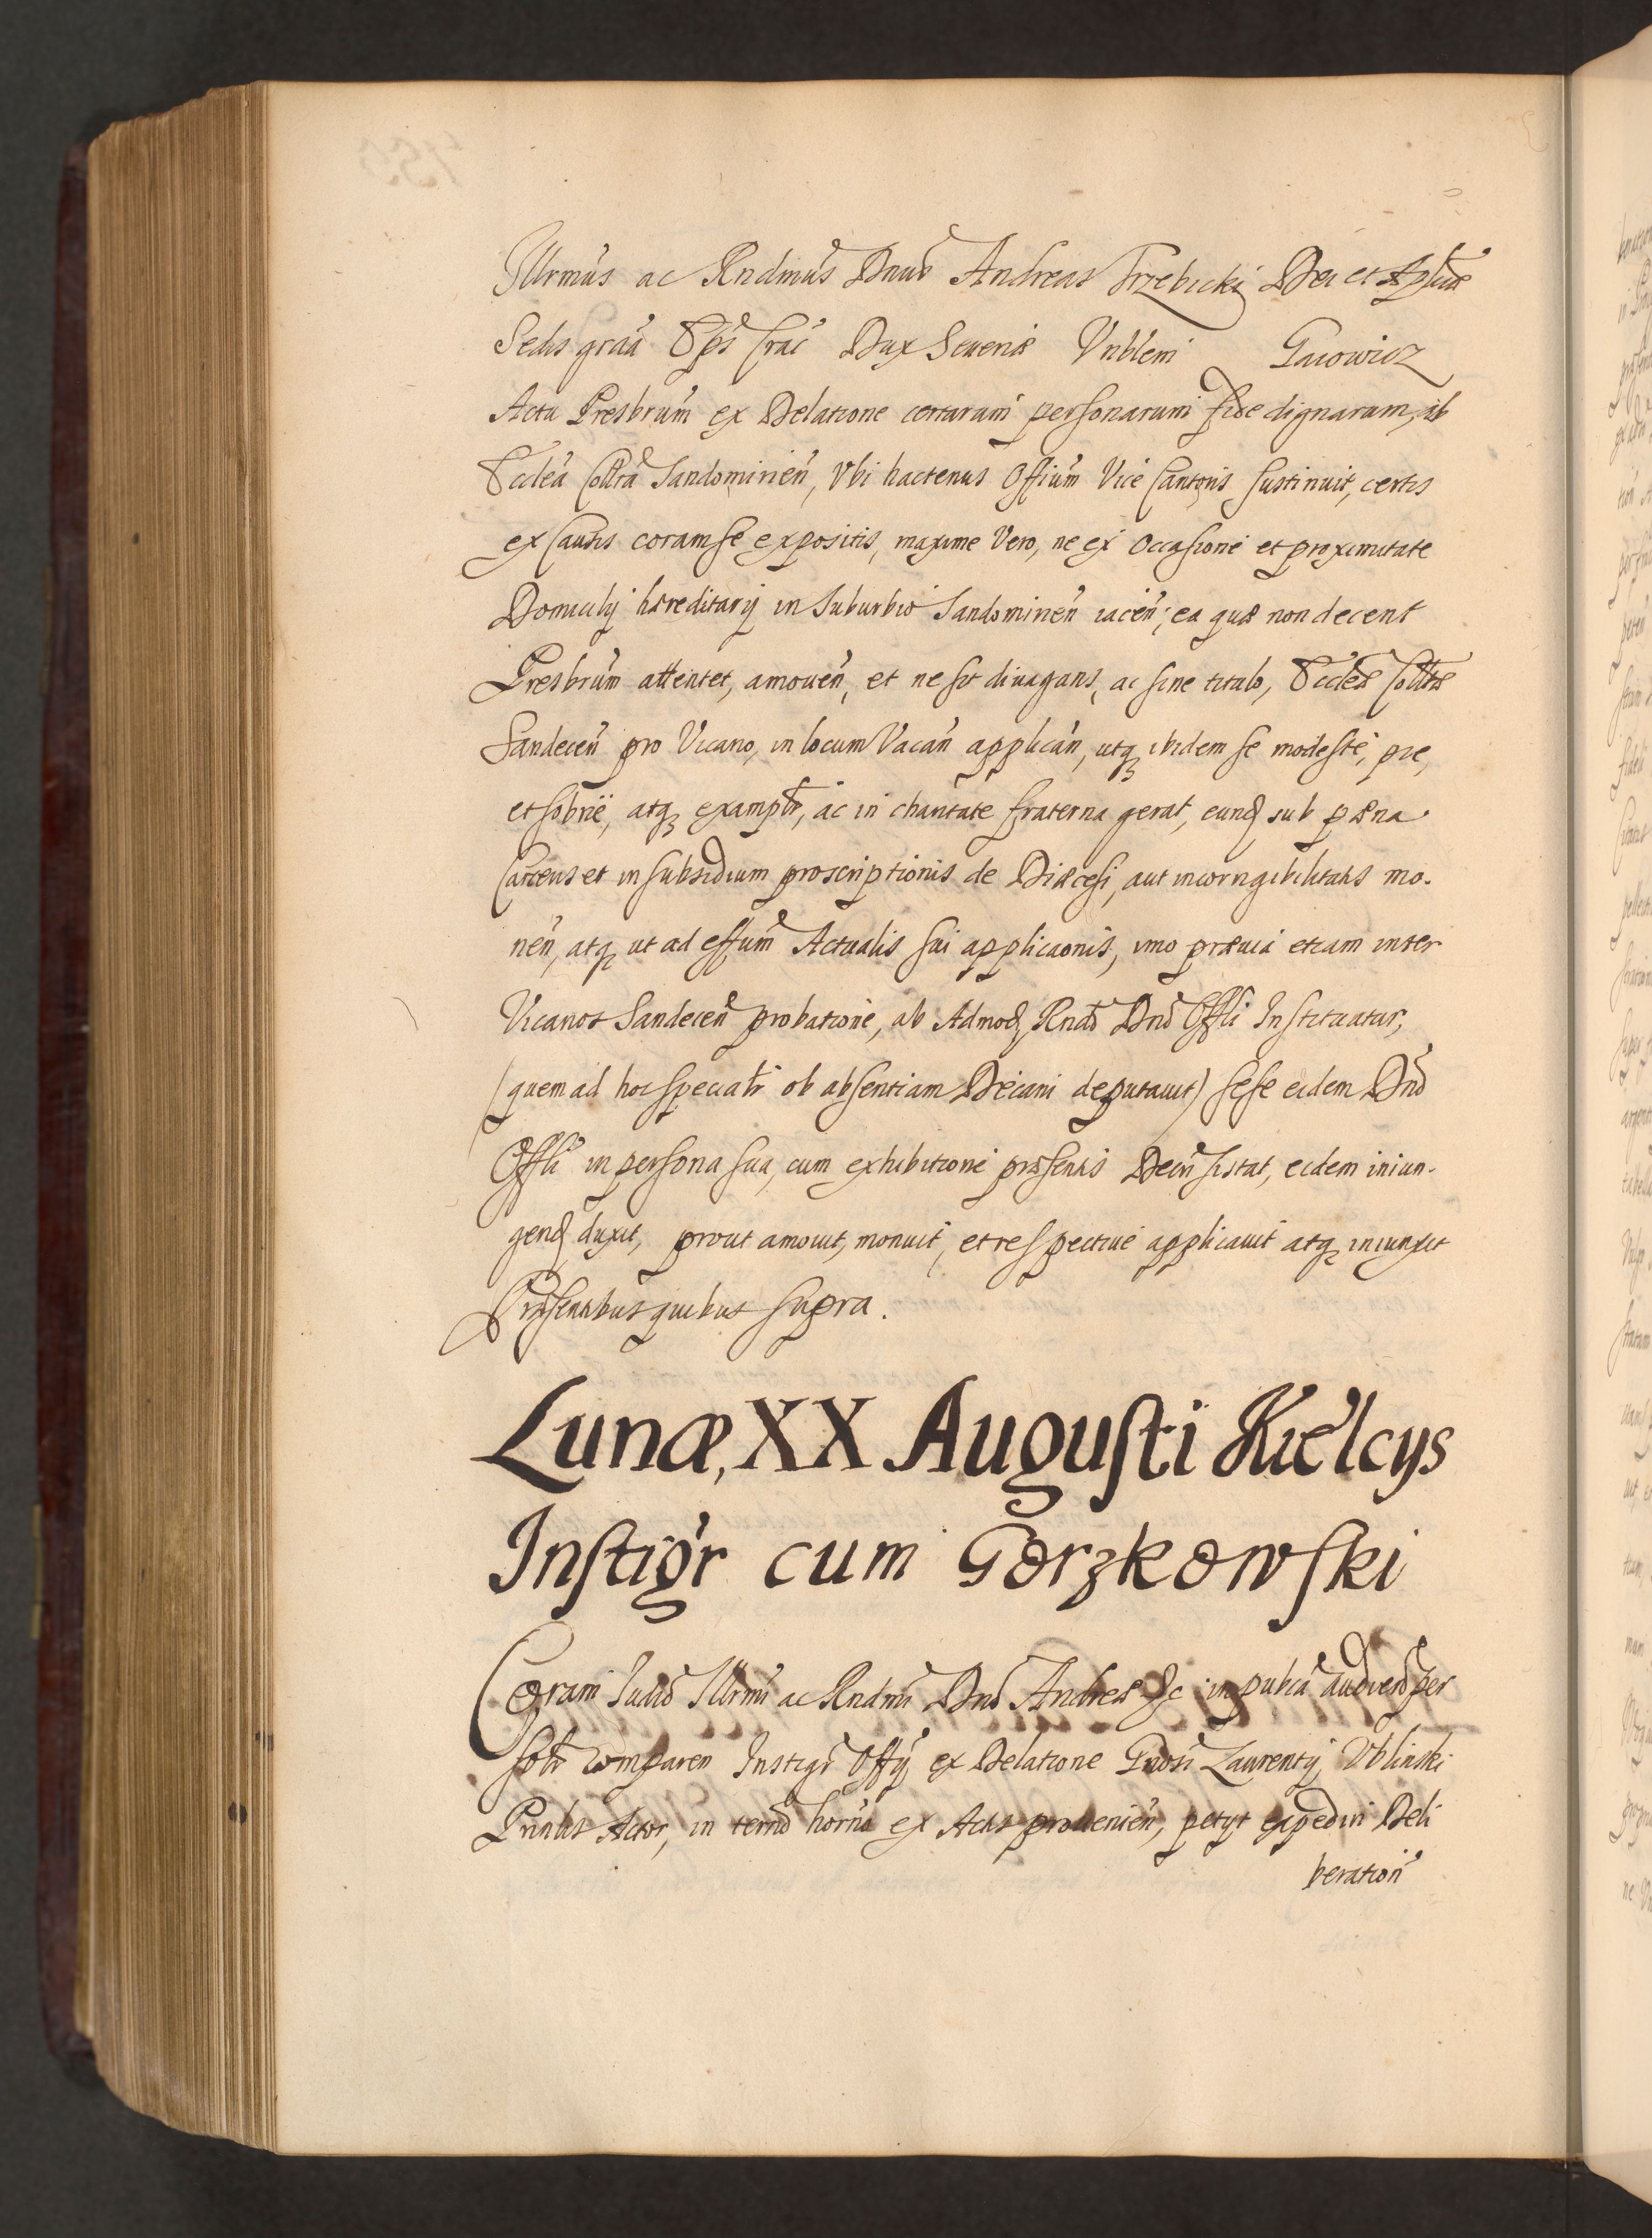 Illrmus ac Rndmus Dnus Andreas Trzebicki Dei et Aplicæ
Sedis grãa Eps Crac Dux Seueriæ Vnblem Gacowicz
Actu Presbrum ex Delatione certarum personarum fide dignarum, ab
Ecclea Collta Sandomirien, Vbi hactenus Offium Vice Cantoris sustinuit, certis
ex Causis coram se expositis, maxime Vero, ne ex Occasione et proximitate
Domicilij hæreditarij in suburbio Sandomirien iacen; ea quæ non decent
Presbrum attentet, amouen, et ne sit diuagans, ac sine titulo, Eccleæ Colltæ
Sandecen pro Vicario, in locum Vacan applican, utq ibidem se modeste, pie,
et sobrie, atq examplr, ac in charitate fraterna gerat, eund sub pæna
Carceris et in subsidium proscriptionis de Diæcesi, aut incorrigibilitatis mo-
nen, atq ut ad effum Actualis sui applicaonis, imo præuia etiam inter
Vicarios Sandecen probatione, ab Admod Rndo Dno Offli Instituatur,
(quem ad hoc specialr ob absentiam Decani deputauit) sese eidem Dno
Offli in persona sua, cum exhibitione præsentis Decti sistat, eidem iniun-
gend duxit, prout amouit, monuit, et respective applicauit atq iniunxit
Præsentibus quibus supra.
Lunæ, XX Augusti Kielcys
Instigr cum Gorzkowski
Coram Iudio Illrmi ac Rndmi Dni Andreæ &c in publca audien per
solr comparen Instigr Offij ex Delatione Gnosi Laurentij Vblinski
Pnalis Actor, in termo horno ex Actis prouenien, petyt expediri Deli
beration